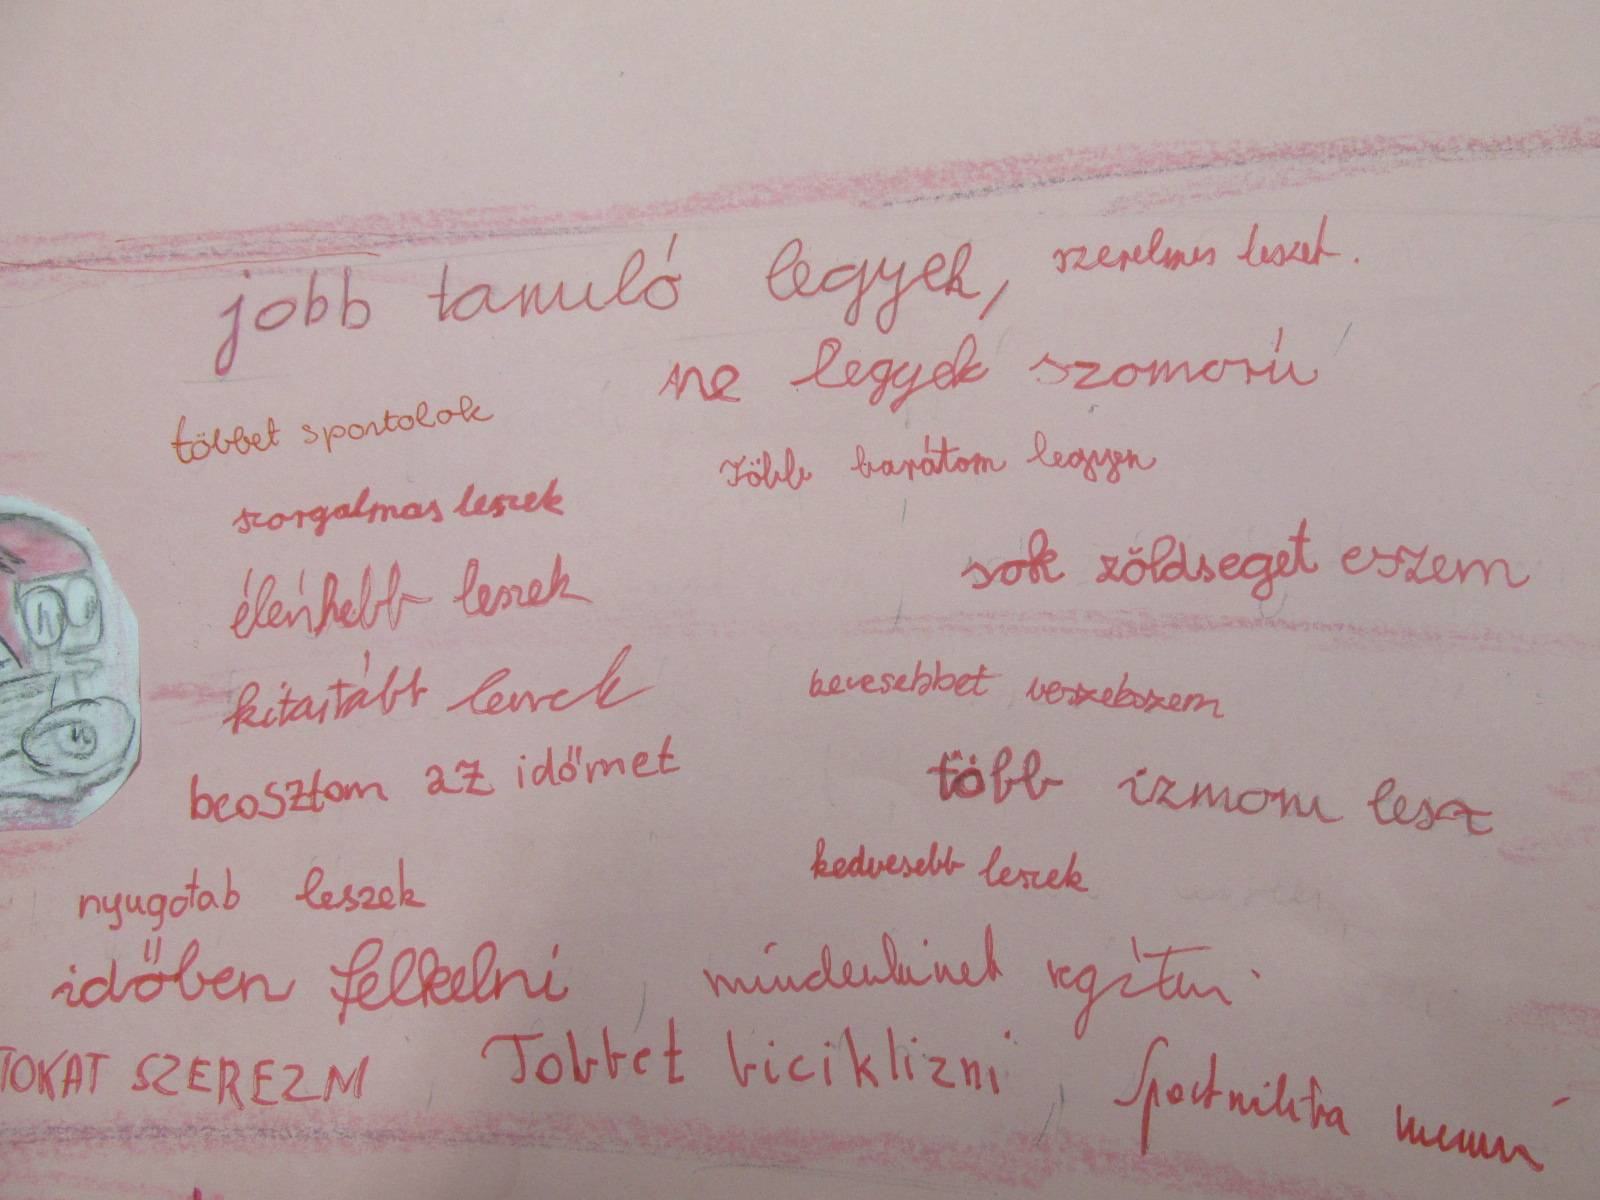 jobb tanuló legyek, szerelmes leszet.
ne legyek szomorú
többet sportolok
Több barátom legyen
szorgalmas leszek
sok zöldseget eszem
élénkebb leszek
kitartább leszek
kevesebbet veszekszem
beosztom az időmet
több izmom lesz
kedvesebb leszek
nyugotab leszek
időben felkelni
mindenkinek segíteni
TOKAT SZEREZM
Tobbet biciklizni